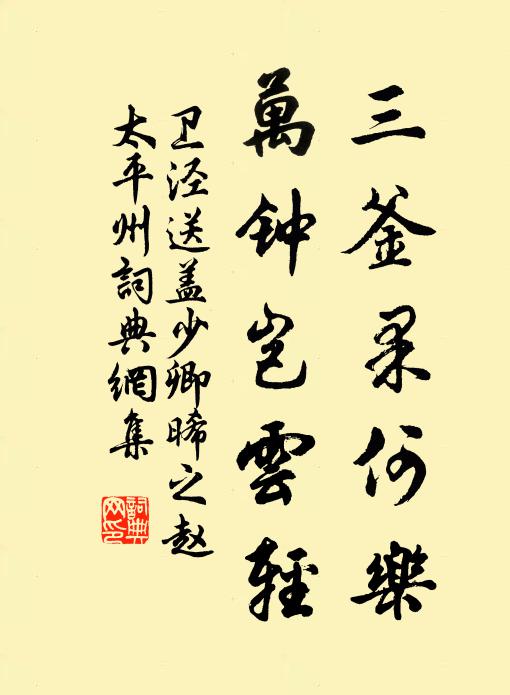 三釜果何樂
萬钟岂雲輕
卫泾送盖少卿晞之赵
太平州詞典網集
詞典
网印